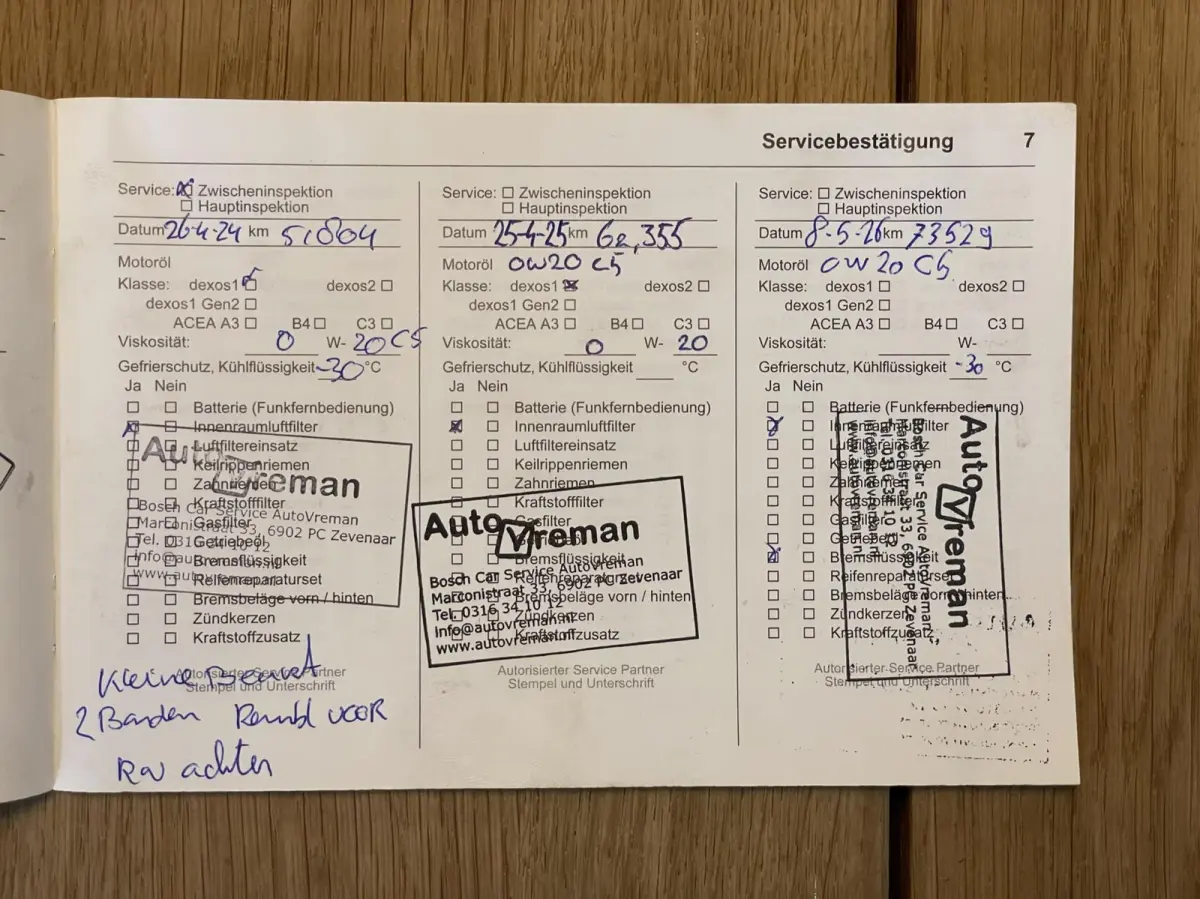 Servicebestätigung 7
Service: Zwischeninspektion
Hauptinspektion
Datum 26-4-24 km 51804
Motoröl
Klasse: dexos1 dexos2
dexos1 Gen2
ACEA A3 B4 C3
Viskosität: 0 W- 20 C5
Gefrierschutz, Kühlflüssigkeit -30 °C
Ja Nein
Batterie (Funkfernbedienung)
Innenraumluftfilter
Luftfiltereinsatz
Keilrippenriemen
Zahnriemen
Kraftstofffilter
Gasfilter
Getriebeöl
Bremsflüssigkeit
Reifenreparaturset
Bremsbeläge vorn / hinten
Zündkerzen
Kraftstoffzusatz
AutoVreman
Bosch Car Service AutoVreman
Marconistraat 33, 6902 PC Zevenaar
Tel. 0316 34 10 12
info@autovreman.nl
www.autovreman.nl
Autorisierter Service Partner
Stempel und Unterschrift
Kleine Beurt
2 Banden voor
achter
Service: Zwischeninspektion
Hauptinspektion
Datum 25-4-25 km 62,355
Motoröl 0W20 C5
Klasse: dexos1 dexos2
dexos1 Gen2
ACEA A3 B4 C3
Viskosität: 0 W- 20
Gefrierschutz, Kühlflüssigkeit °C
Ja Nein
Batterie (Funkfernbedienung)
Innenraumluftfilter
Luftfiltereinsatz
Keilrippenriemen
Zahnriemen
Kraftstofffilter
Gasfilter
Getriebeöl
Bremsflüssigkeit
Reifenreparaturset
Bremsbeläge vorn / hinten
Zündkerzen
Kraftstoffzusatz
AutoVreman
Bosch Car Service AutoVreman
Marconistraat 33, 6902 PC Zevenaar
Tel. 0316 34 10 12
info@autovreman.nl
www.autovreman.nl
Autorisierter Service Partner
Stempel und Unterschrift
Service: Zwischeninspektion
Hauptinspektion
Datum 8-5-26 km 73529
Motoröl 0W20 C5
Klasse: dexos1 dexos2
dexos1 Gen2
ACEA A3 B4 C3
Viskosität: W-
Gefrierschutz, Kühlflüssigkeit -30 °C
Ja Nein
Batterie (Funkfernbedienung)
Innenraumluftfilter
Luftfiltereinsatz
Keilrippenriemen
Zahnriemen
Kraftstofffilter
Gasfilter
Getriebeöl
Bremsflüssigkeit
Reifenreparaturset
Bremsbeläge vorn / hinten
Zündkerzen
Kraftstoffzusatz
AutoVreman
Bosch Car Service AutoVreman
Marconistraat 33, 6902 PC Zevenaar
Tel. 0316 34 10 12
info@autovreman.nl
www.autovreman.nl
Autorisierter Service Partner
Stempel und Unterschrift